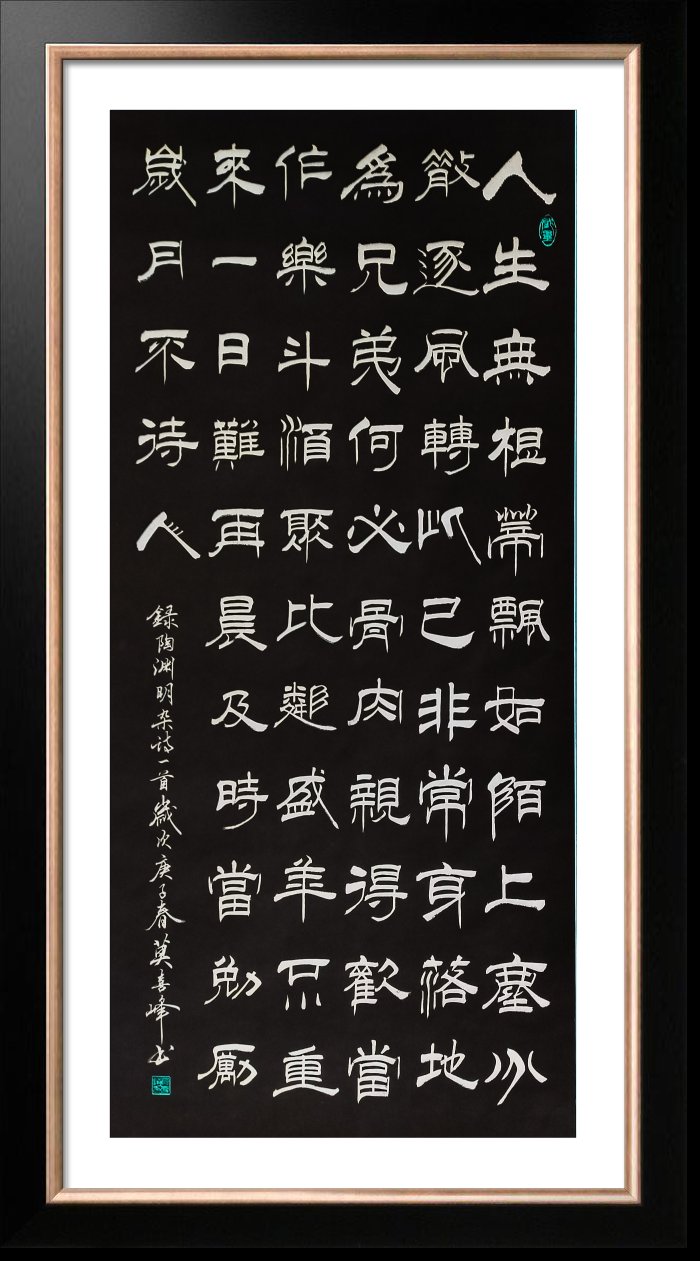 人生無根蒂飄如陌上塵分
散逐風轉此已非常身落地
爲兄弟何必骨肉親得歡當
作樂斗酒聚比鄰盛年不重
來一日難再晨及時當勉勵
歲月不待人
録陶渊明杂诗一首歲次庚子春莫喜峰书